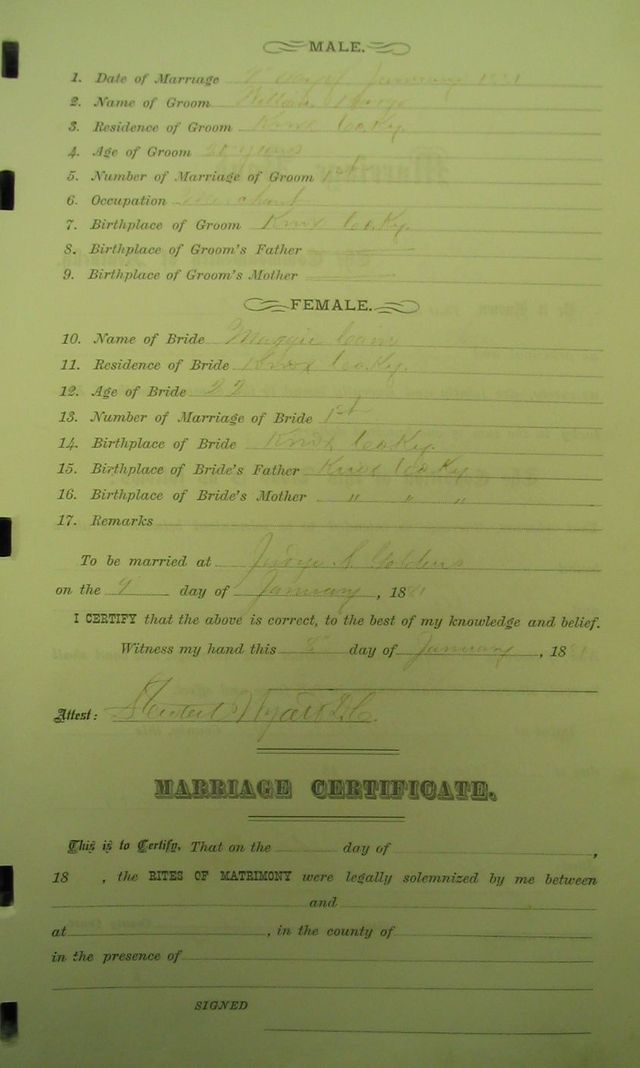 MALE.
1. Date of Marriage January 1881
2. Name of Groom William
3. Residence of Groom Knox Co Ky.
4. Age of Groom years
5. Number of Marriage of Groom 1st
6. Occupation Merchant
7. Birthplace of Groom Knox Co. Ky.
8. Birthplace of Groom's Father
9. Birthplace of Groom's Mother
FEMALE.
10. Name of Bride Maggie
11. Residence of Bride Knox Co. Ky.
12. Age of Bride 22
13. Number of Marriage of Bride 1st
14. Birthplace of Bride Knox Co Ky.
15. Birthplace of Bride's Father Knox Co Ky
16. Birthplace of Bride's Mother " " "
17. Remarks
To be married at Judge
on the 9 day of January, 1881
I CERTIFY that the above is correct, to the best of my knowledge and belief.
Witness my hand this 8 day of January, 1881
Attest: Wyatt D.C.
MARRIAGE CERTIFICATE.
This is to Certify, That on the day of ,
18 , the RITES OF MATRIMONY were legally solemnized by me between
and
at , in the county of
in the presence of
SIGNED